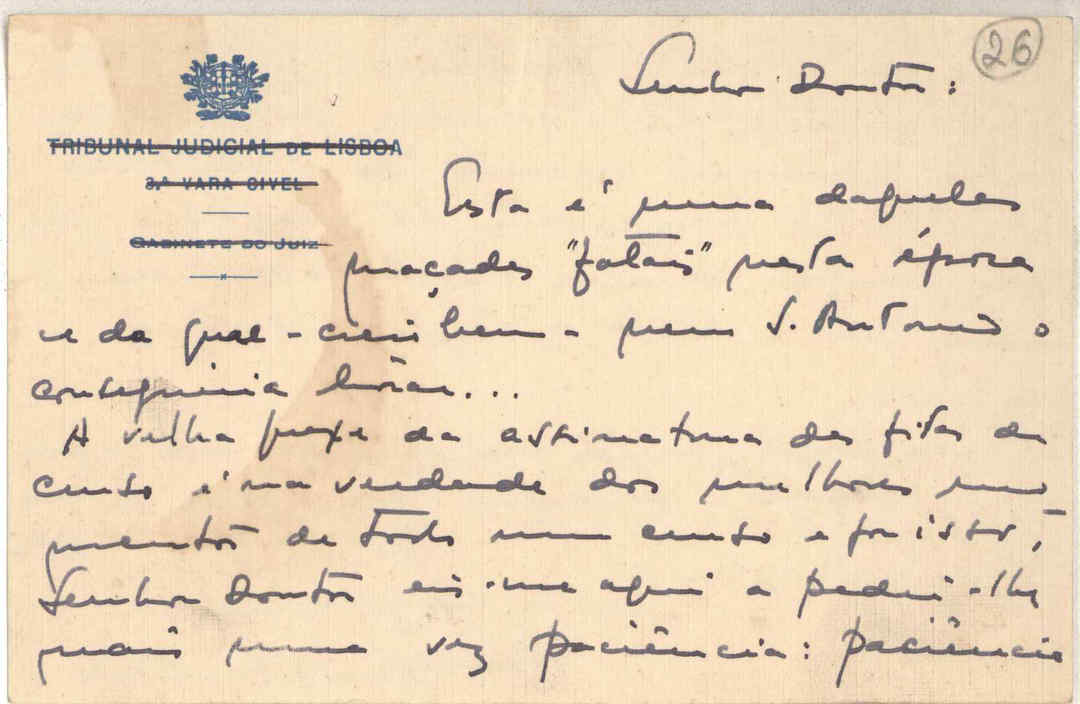 26
Senhor Doutor:
TRIBUNAL JUDICIAL DE LISBOA
3.ª VARA CIVEL
GABINETE DO JUIZ
Esta é uma daquelas
maçadas "fatais" nesta época
e da qual - creio bem - nem S. Antonio o
conseguiria livrar...
A velha praxe da assinatura das fitas de
curso é na verdade dos melhores mo
mentos de todo um curso e por isso,
Senhor Doutor eis-me aqui a pedir-lhe
mais uma vez paciência: paciência